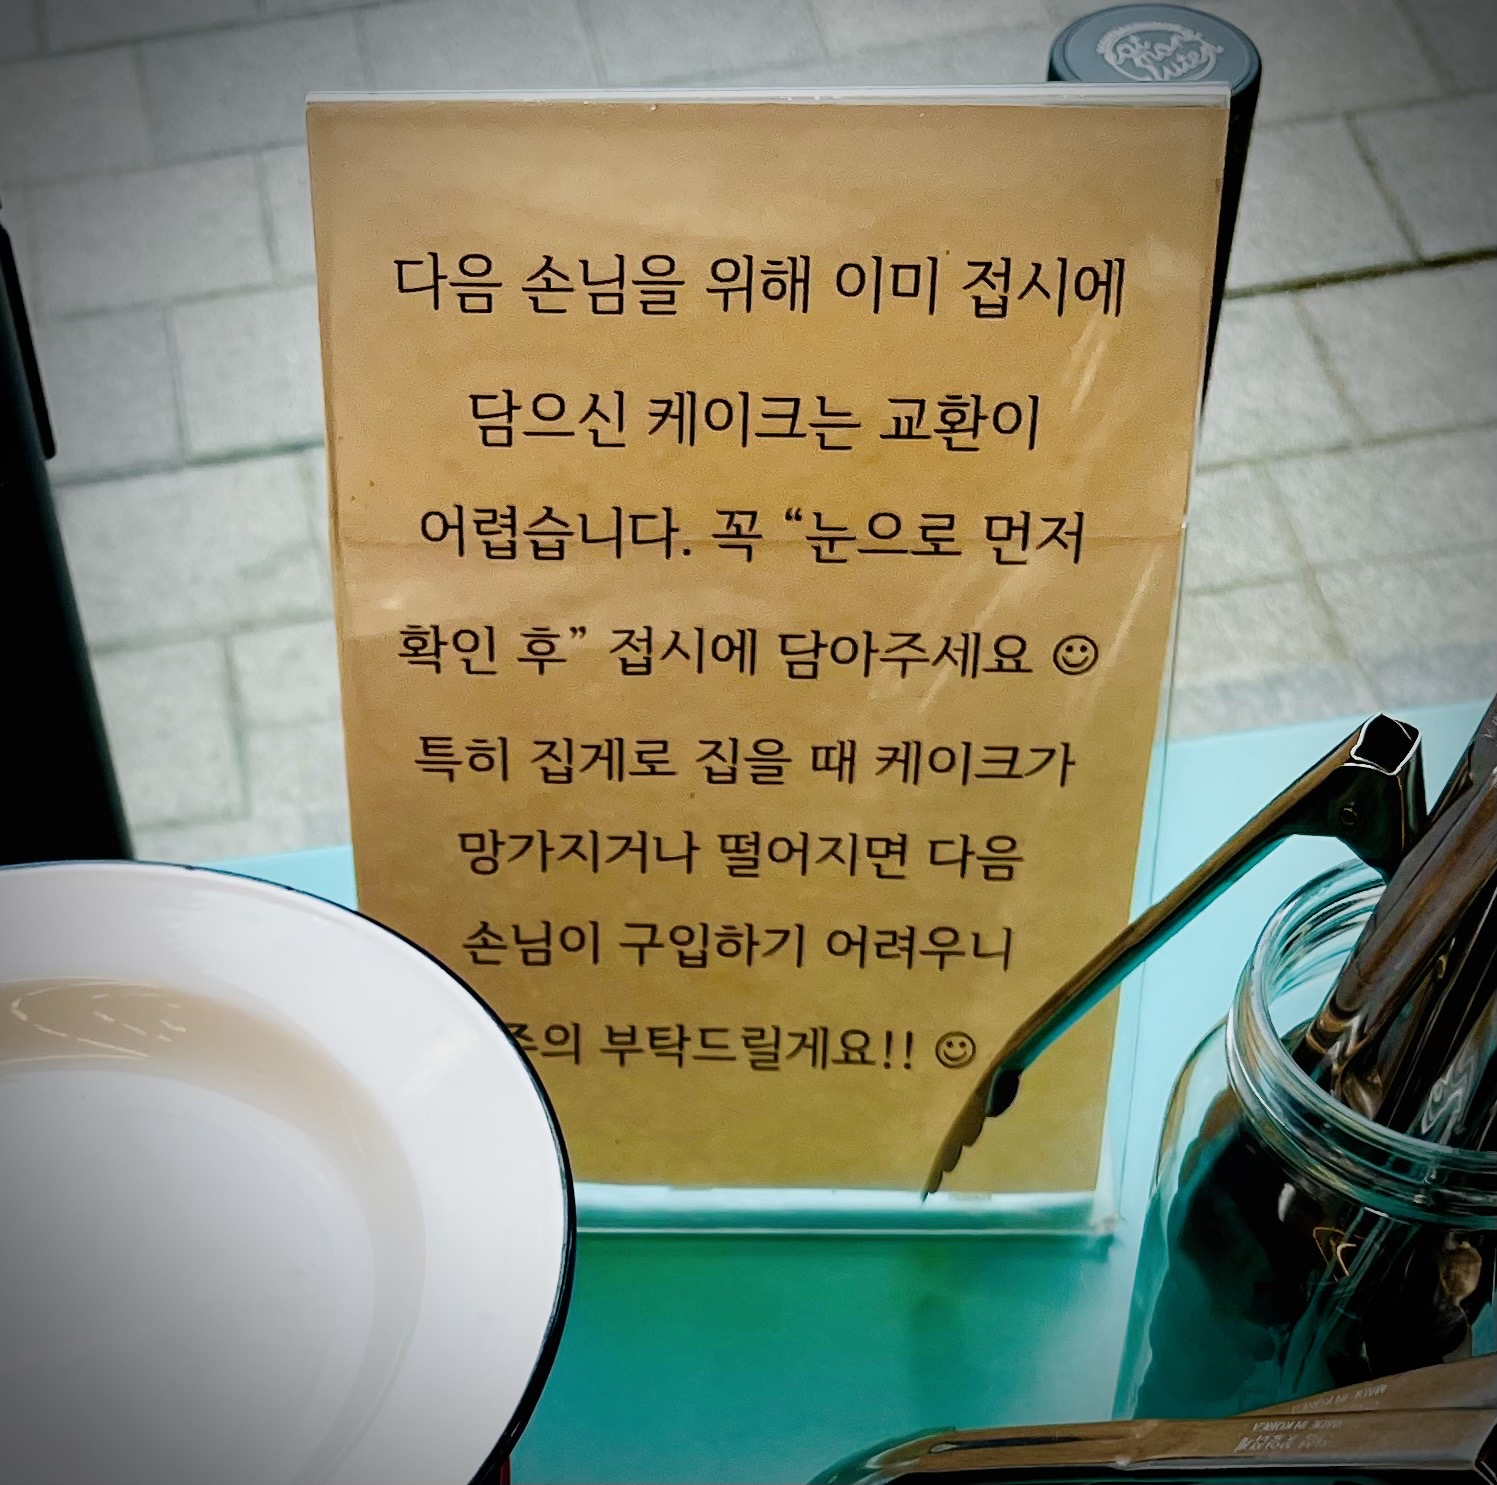 다음 손님을 위해 이미 접시에
담으신 케이크는 교환이
어렵습니다. 꼭 “눈으로 먼저
확인 후” 접시에 담아주세요 ☺
특히 집게로 집을 때 케이크가
망가지거나 떨어지면 다음
손님이 구입하기 어려우니
주의 부탁드릴게요!! ☺
MADE IN KOREA